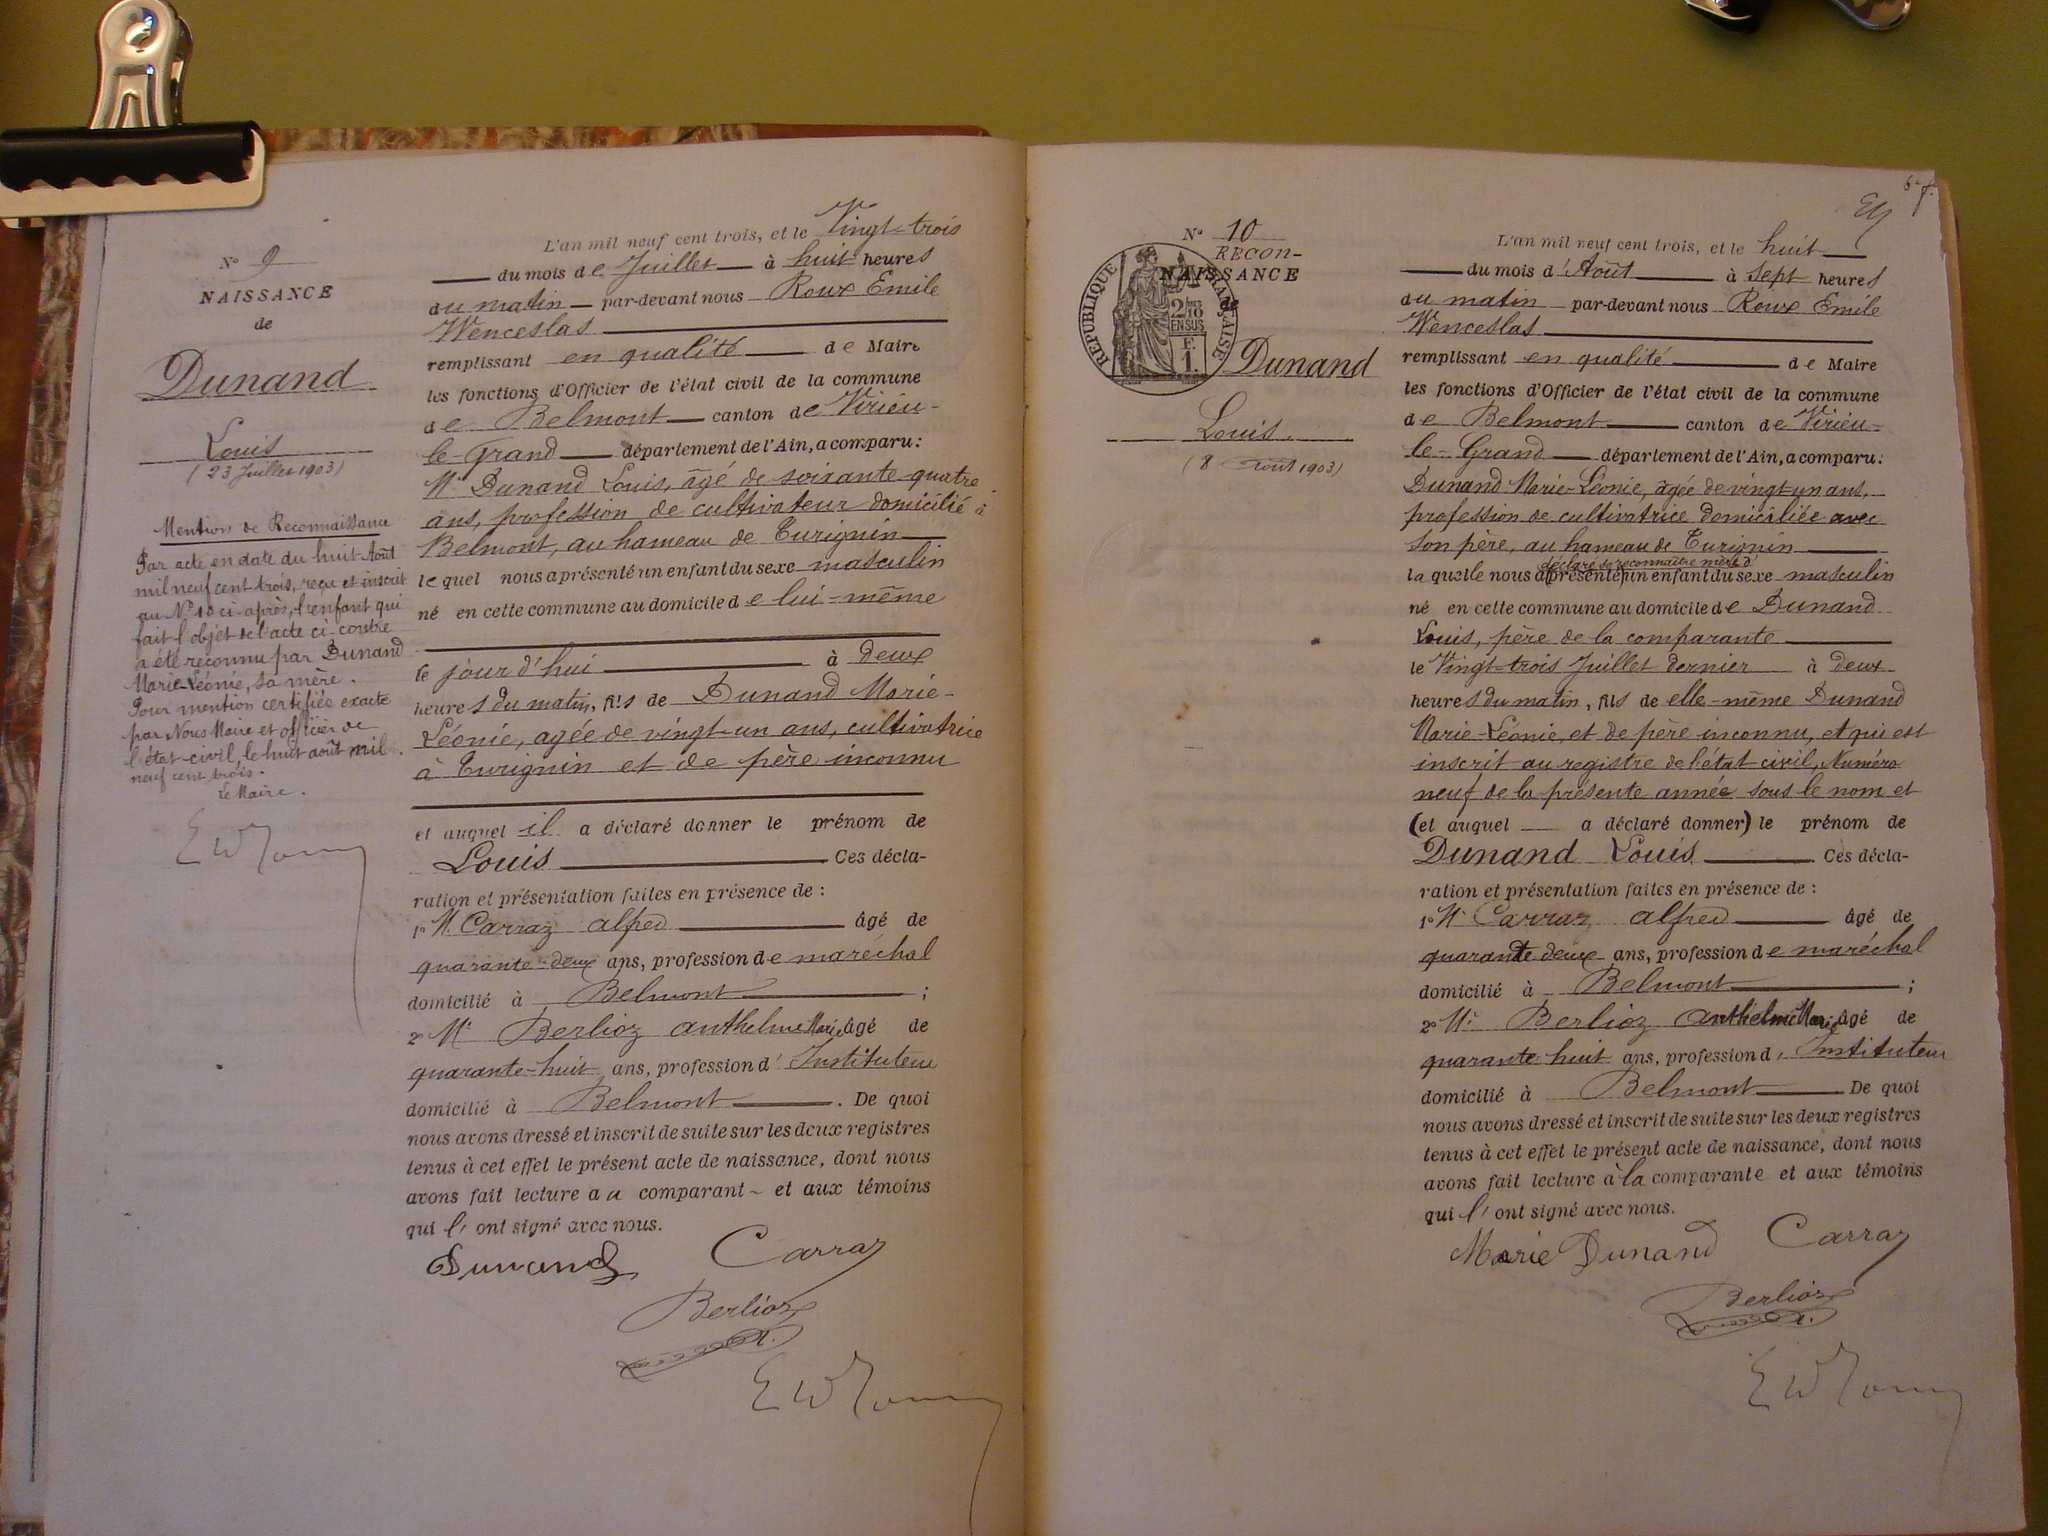 N° 9
NAISSANCE
de
Dunand
Louis
(23 Juillet 1903)
Mention de Reconnaissance
Par acte en date du huit Août
mil neuf cent trois, reçu et inscrit
au N° 10 ci-après, l'enfant qui
fait l'objet de l'acte ci-contre
a été reconnu par Dunand
Marie-Léonie, sa mère.
Pour mention certifiée exacte
par Nous Maire et officier de
l'état-civil, le huit août mil
neuf cent trois.
Le Maire.
L'an mil neuf cent trois, et le Vingt-trois
du mois de Juillet à huit heures
du matin par-devant nous Roux Emile
Wenceslas
remplissant en qualité de Maire
les fonctions d'Officier de l'état civil de la commune
de Belmont canton de Virieu-
le-Grand département de l'Ain, a comparu:
Mr Dunand Louis, âgé de soixante-quatre
ans, profession de cultivateur domicilié à
Belmont, au hameau de Turignin
le quel nous a présenté un enfant du sexe masculin
né en cette commune au domicile de lui-même
le jour d'hui à deux
heures du matin, fils de Dunand Marie-
Léonie, agée de vingt-un ans, cultivatrice
à Turignin et de père inconnu
et auquel il a déclaré donner le prénom de
Louis Ces décla-
ration et présentation faites en présence de :
1° M. Carraz alfred âgé de
quarante-deux ans, profession de maréchal
domicilié à Belmont ;
2° Mr Berlioz anthelme Marie âgé de
quarante-huit ans, profession d' Instituteur
domicilié à Belmont . De quoi
nous avons dressé et inscrit de suite sur les deux registres
tenus à cet effet le présent acte de naissance, dont nous
avons fait lecture au comparant et aux témoins
qui l' ont signé avec nous.
Dunand Carraz
Berlioz
N° 10
RECON-
NAISSANCE
de
RÉPUBLIQUE FRANÇAISE
2/10
EN SUS
F.
1.
Dunand
Louis
(8 Août 1903)
L'an mil neuf cent trois, et le huit
du mois d'Août à sept heures
du matin par-devant nous Roux Emile
Wenceslas
remplissant en qualité de Maire
les fonctions d'Officier de l'état civil de la commune
de Belmont canton de Virieu-
le-Grand département de l'Ain, a comparu:
Dunand Marie-Léonie, âgée de vingt-un ans,
profession de cultivatrice domiciliée avec
son père, au hameau de Turignin
déclare se reconnaître mère d'
la quelle nous a présenté un enfant du sexe masculin
né en cette commune au domicile de Dunand
Louis, père de la comparante
le Vingt-trois Juillet dernier à deux
heures du matin, fils de elle-même Dunand
Marie-Léonie, et de père inconnu, et qui est
inscrit au registre de l'état civil, Numéro
neuf de la présente année sous le nom et
(et auquel a déclaré donner) le prénom de
Dunand Louis. Ces décla-
ration et présentation faites en présence de :
1° Mr Carraz alfred âgé de
quarante deux ans, profession de maréchal
domicilié à Belmont ;
2° Mr Berlioz anthelme Marie âgé de
quarante huit ans, profession d' Instituteur
domicilié à Belmont De quoi
nous avons dressé et inscrit de suite sur les deux registres
tenus à cet effet le présent acte de naissance, dont nous
avons fait lecture à la comparante et aux témoins
qui l' ont signé avec nous.
Marie Dunand Carraz
Berlioz